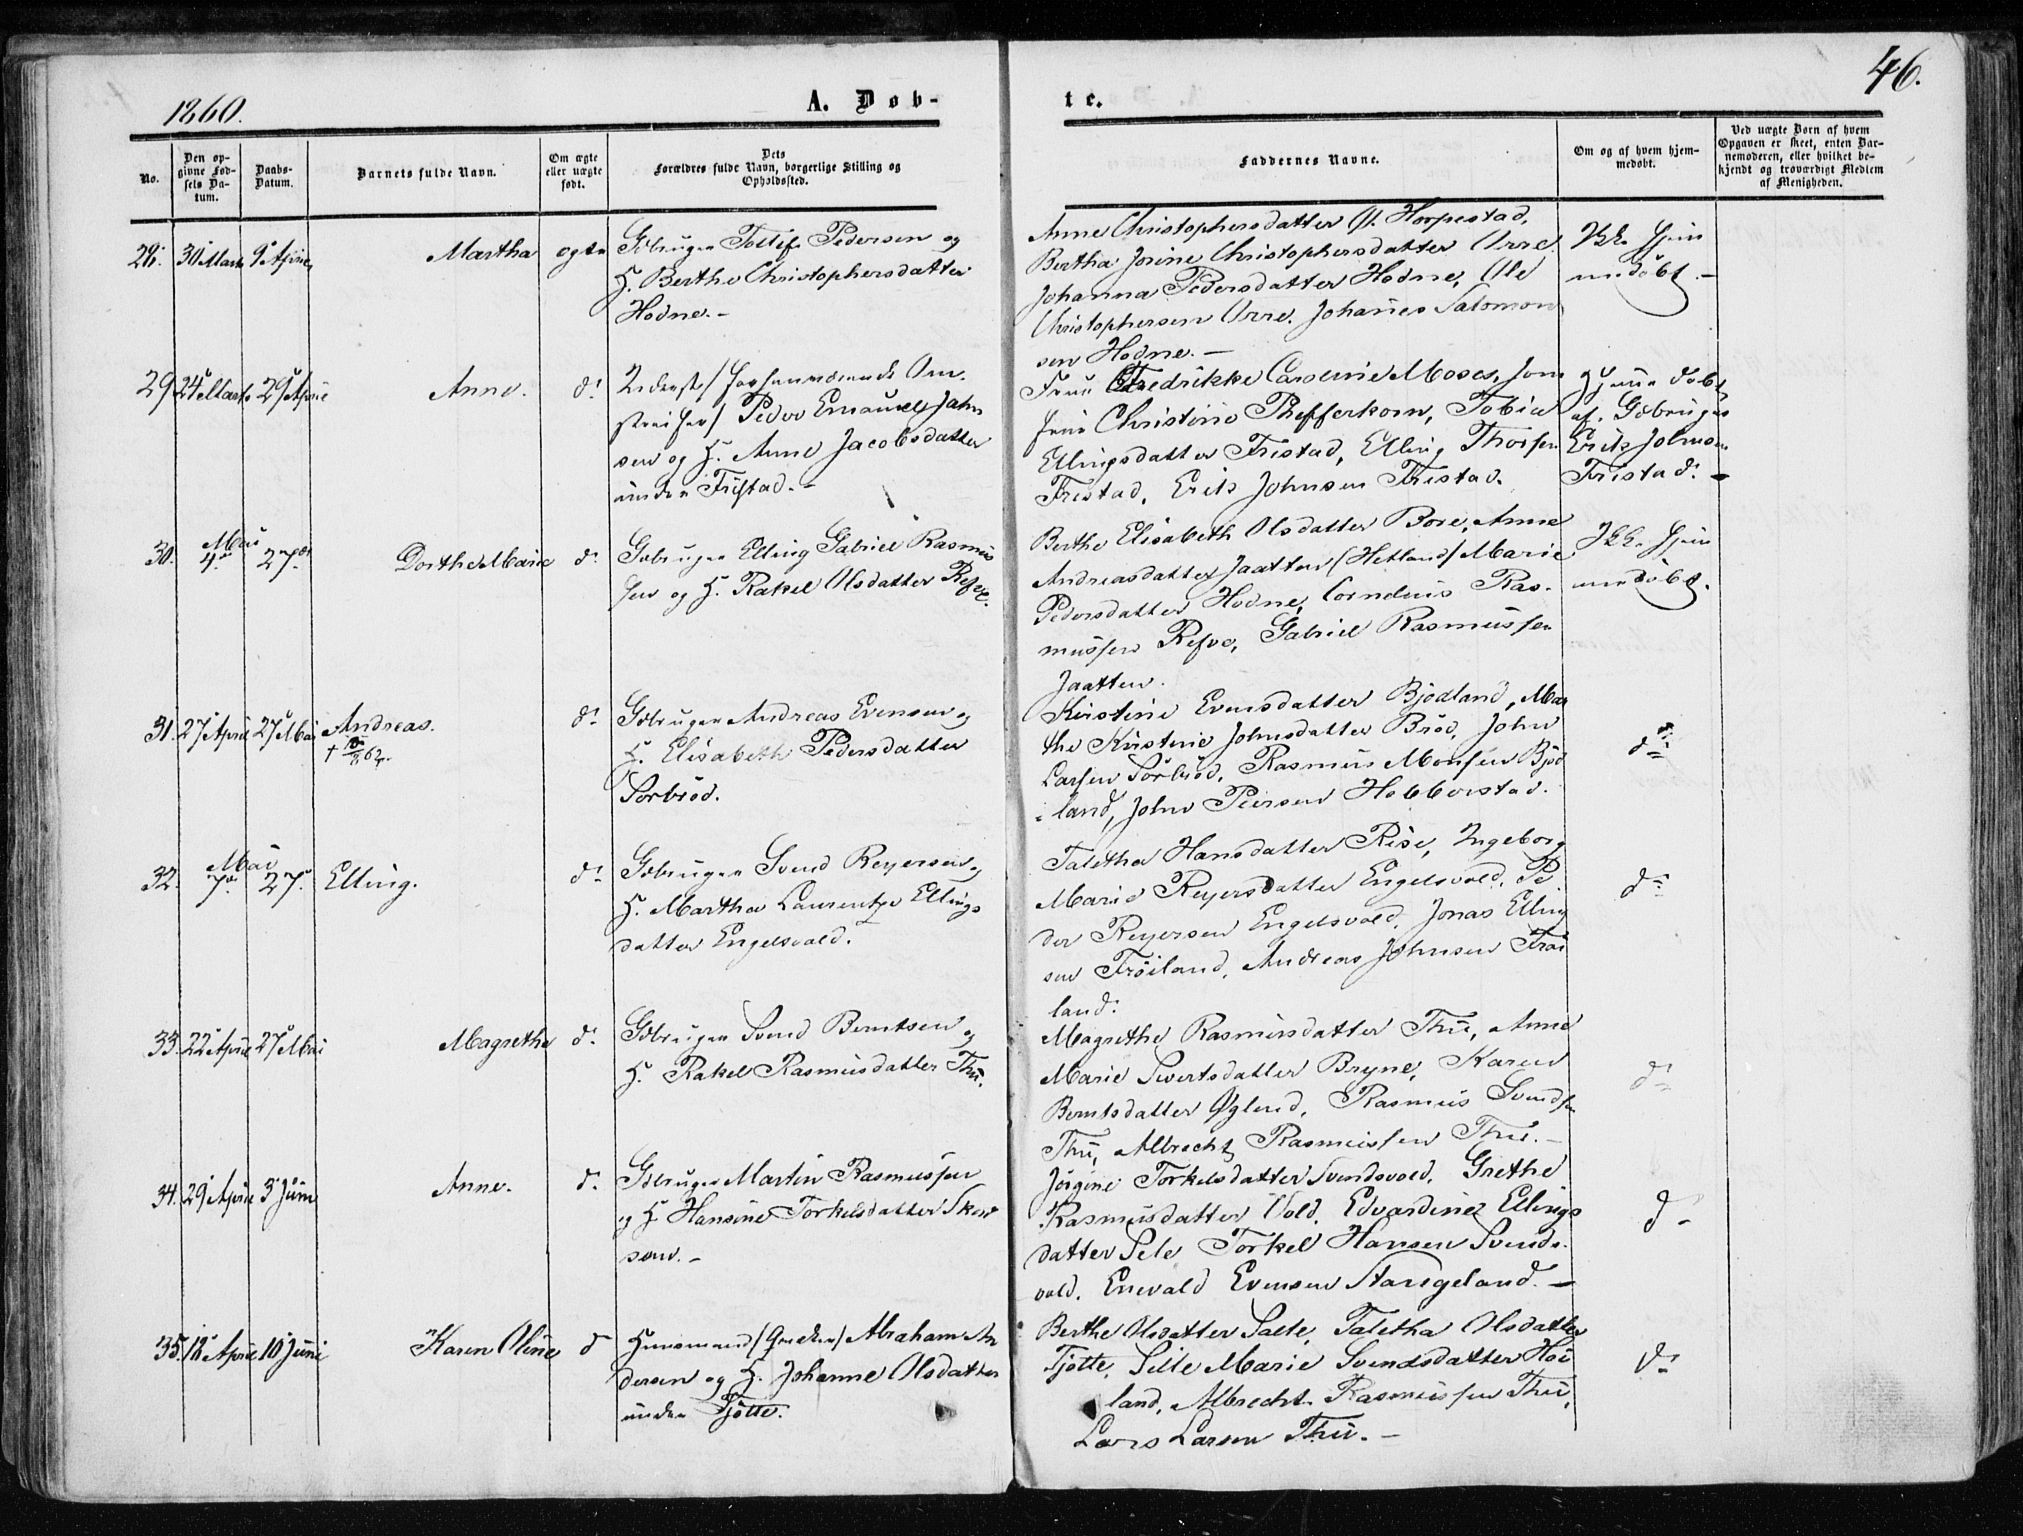 1860.
A. Døb-
te.
46.
No.
Den op-
givne Fød-
sels Da-
tum.
Daabs-
Datum.
Barnets fulde Navn.
Om ægte
eller uægte
født.
Dets
Forældres fulde Navn, borgerlige Stilling og
Opholdssted.
Faddernes Navne.
Om og af hvem hjem-
medøbt.
Ved uægte Børn af hvem
Opgaven er skeet, enten Bar-
nemoderen, eller hvilket be-
kjendt og troværdigt Medlem
af Menigheden.
28. 30 Marts 9 April Martha ægte Gbruger Tollif Pedersen og
H. Berthe Christophersdatter
Hodne.-
Anne Christophersdatter Horpestad,
Bertha Jorine Christophersdatter Orre.
Johanna Pedersdatter Hodne, Ole
Christophersen Orre. Johanes Salomon-
sen Hodne.-
Ikke hjem
medøbt.-
29 24 Marts 29 April Anne. do
Peder Emanuel Jahn
sen og H. Anne Jacobsdatter
under Fristad.-
Fredrikke Caroline Moses, Jom
fru Christine Pfefferkorn, Tobia
Ellingsdatter Fristad, Elling Thorsen
Fristad, Erik Johnsen Fristad.
Hjemedøbt
af Gbruger
Erik Johnsen
Fristad.-
30. Mai
4de 27de Dorthe Marie do Gbruger Elling Gabriel Rasmus
sen og H. Rakel Olsdatter Refve.
Berthe Elisabeth Olsdatter Bore, Anne
Andreasdatter Jaatten (Hetland) Marie
Pedersdatter Hodne, Cornelius Ras-
mussen Refve, Gabriel Rasmussen
Jaatten.
Ikke hjem
medøbt.
31. 27 April 27 Mai Andreas. do Gbruger Andreas Evensen og
† 62
H. Elisabeth Pedersdatter
Sørbrød.
Kirstine Evensdatter Bjodland, Mar
the Kirstine Johnsdatter Brød, John
Larsen Sørbrød, Rasmus Monsen Bjod
land, John Peersen Hobberstad.
do
32. Mai
7de 27. Elling. do Gbruger Svend Reyersen og
H. Martha Laurentze Ellings
datter Engelsvold.
Taletha Hansdatter Rise, Ingeborg
Marie Reyersdatter Engelsvold, Pe
der Reyersen Engelsvold, Jonas Elling
sen Frøiland, Andreas Johnsen Frøi
land.
do
33. 22 April 27 Mai Magrethe do Gbruger Svend Berntsen og
H. Rakel Rasmusdatter Thu.
Magrethe Rasmusdatter Thu, Anne
Marie Sivertsdatter Bryne, Karen
Berntsdatter Øglend, Rasmus Svendsen
Thu, Albrecht Rasmussen Thu.-
do
34. 29 April 3 Juni Anne. do Gbruger Martin Rasmussen
og H. Hansine Torkelsdatter
Jørgine Torkelsdatter Svendsvold, Grethe
Rasmusdatter Vold, Edvardine Ellings
datter Sele Torkel Hansen Svends-
vold, Enevald Evensen Stangeland.-
do
35. 18 April 10 Juni Karen Oline do Huusmand Abraham An
dersen og H. Johanne Olsdatter
under Tjøtte.
Berthe Olsdatter Salte, Taletha Olsdatter
Tjøtte, Sille Marie Svendsdatter Høi
land, Albrecht Rasmussen Thu,
Lars Larsen Thu.-
do